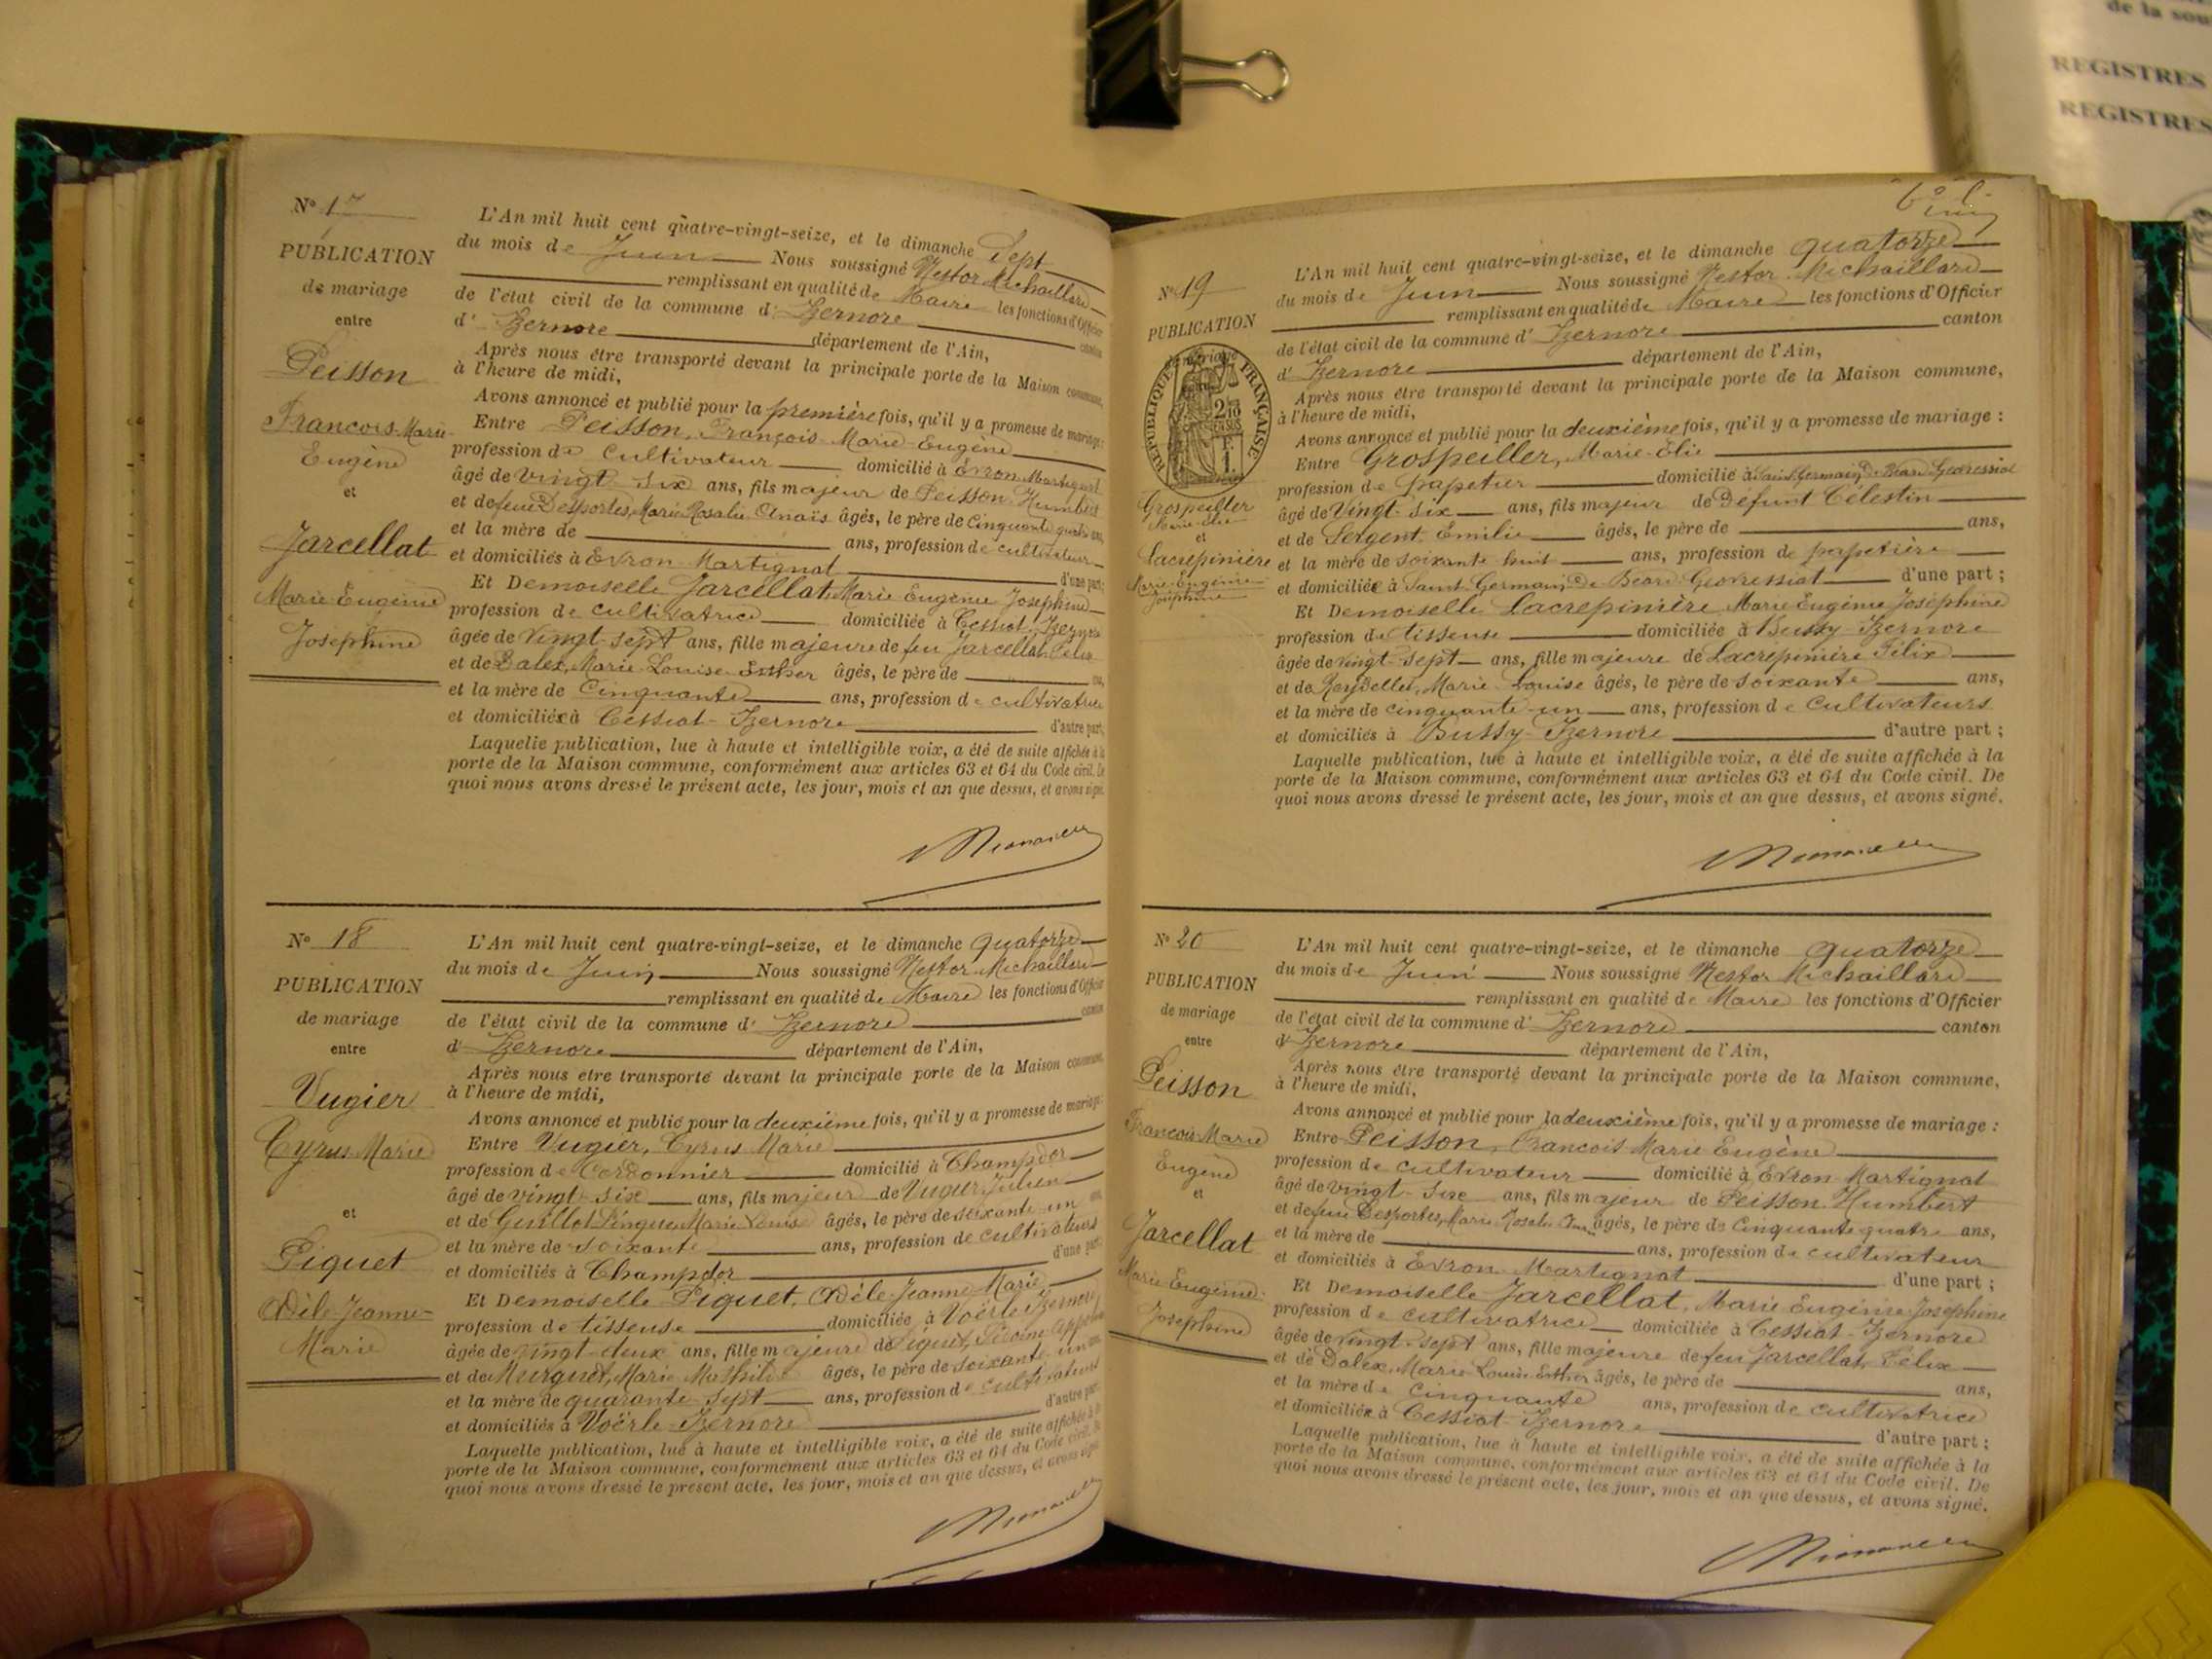 de la sou
REGISTRES
REGISTRES
N° 17
PUBLICATION
de mariage
entre
Peisson
François-Marie-
Eugène
et
Jarcellat
Marie Eugénie
Joséphine
L'An mil huit cent quatre-vingt-seize, et le dimanche Sept
du mois de Juin Nous soussigné Nestor Michaillard
remplissant en qualité de Maire les fonctions d'Officier
de l'état civil de la commune d' Izernore canton
d' Izernore département de l'Ain,
Après nous être transporté devant la principale porte de la Maison commune,
à l'heure de midi,
Avons annoncé et publié pour la première fois, qu'il y a promesse de mariage :
Entre Peisson, François Marie Eugène
profession de Cultivateur domicilié à Evron Martignat
âgé de vingt six ans, fils majeur de Peisson Humbert
et de feue Desportes, Marie Rosalie Anaïs âgés, le père de Cinquante quatre ans,
et la mère de ans, profession de cultivateur
et domiciliés à Evron Martignat d'une part ;
Et Demoiselle Jarcellat Marie Eugénie Joséphine
profession de cultivatrice domiciliée à Cessiat Izernore
âgée de vingt-sept ans, fille majeure de feu Jarcellat Félix
et de Dalex, Marie Louise Esther âgés, le père de ans,
et la mère de Cinquante ans, profession de cultivatrice
et domiciliée à Cessiat-Izernore d'autre part ;
Laquelle publication, lue à haute et intelligible voix, a été de suite affichée à la
porte de la Maison commune, conformément aux articles 63 et 64 du Code civil. De
quoi nous avons dressé le présent acte, les jour, mois et an que dessus, et avons signé.
N° 18
PUBLICATION
de mariage
entre
Vugier
Cyrus Marie
et
Piquet
Adèle-Jeanne-
Marie
L'An mil huit cent quatre-vingt-seize, et le dimanche quatorze
du mois de Juin Nous soussigné Nestor Michaillard
remplissant en qualité de Maire les fonctions d'Officier
de l'état civil de la commune d' Izernore canton
d' Izernore département de l'Ain,
Après nous être transporté devant la principale porte de la Maison commune,
à l'heure de midi,
Avons annoncé et publié pour la deuxième fois, qu'il y a promesse de mariage :
Entre Vugier, Cyrus Marie
profession de Cordonnier domicilié à Champdor
âgé de vingt-six ans, fils majeur de Vugier Julien
et de Guillot Marie Louise âgés, le père de soixante un ans,
et la mère de soixante ans, profession de cultivateurs
et domiciliés à Champdor d'une part
Et Demoiselle Piquet, Adèle-Jeanne-Marie
profession de tisseuse domiciliée à Voërle Izernore
âgée de vingt-deux ans, fille majeure de Piquet,
et de Murguet, Marie Mathilde âgés, le père de soixante un ans
et la mère de quarante sept ans, profession de cultivateurs
et domiciliés à Voërle Izernore d'autre part
Laquelle publication, lue à haute et intelligible voix, a été de suite affichée à la
porte de la Maison commune, conformément aux articles 63 et 64 du Code civil. De
quoi nous avons dressé le présent acte, les jour, mois et an que dessus, et avons signé
N° 19
PUBLICATION
de mariage
RÉPUBLIQUE FRANÇAISE
Grospeiller
Marie-Elie
et
Lacrepinière
Marie-Eugénie
Joséphine
L'An mil huit cent quatre-vingt-seize, et le dimanche quatorze
du mois de Juin Nous soussigné Nestor Michaillard
remplissant en qualité de Maire les fonctions d'Officier
de l'état civil de la commune d' Izernore canton
d' Izernore département de l'Ain,
Après nous être transporté devant la principale porte de la Maison commune,
à l'heure de midi,
Avons annoncé et publié pour la deuxième fois, qu'il y a promesse de mariage :
Entre Grospeiller, Marie-Elie
profession de papetier domicilié à Saint Germain de Béard Géovressiat
âgé de Vingt-six ans, fils majeur de Défunt Célestin
et de Sergent Emilie âgés, le père de ans,
et la mère de soixante huit ans, profession de papetière
et domiciliée à Saint-Germain de Béard-Géovressiat d'une part ;
Et Demoiselle Lacrepinière Marie Eugénie Joséphine
profession de tisseuse domiciliée à Bussy-Izernore
âgée de vingt-sept ans, fille majeure de Lacrepinière Félix
et de Reydellet, Marie Louise âgés, le père de soixante ans,
et la mère de cinquante-un ans, profession de Cultivateurs
et domiciliés à Bussy-Izernore d'autre part ;
Laquelle publication, lue à haute et intelligible voix, a été de suite affichée à la
porte de la Maison commune, conformément aux articles 63 et 64 du Code civil. De
quoi nous avons dressé le présent acte, les jour, mois et an que dessus, et avons signé.
N° 20
PUBLICATION
de mariage
entre
Peisson
François Marie
Eugène
et
Jarcellat
Marie Eugénie
Joséphine
L'An mil huit cent quatre-vingt-seize, et le dimanche quatorze
du mois de Juin Nous soussigné Nestor Michaillard
remplissant en qualité de Maire les fonctions d'Officier
de l'état civil de la commune d' Izernore canton
d' Izernore département de l'Ain,
Après nous être transporté devant la principale porte de la Maison commune,
à l'heure de midi,
Avons annoncé et publié pour la deuxième fois, qu'il y a promesse de mariage :
Entre Peisson, François Marie Eugène
profession de cultivateur domicilié à Evron Martignat
âgé de vingt-six ans, fils majeur de Peisson Humbert
et de feue Desportes, Marie Rosalie âgés, le père de Cinquante quatre ans,
et la mère de ans, profession de cultivateur
et domiciliés à Evron-Martignat d'une part ;
Et Demoiselle Jarcellat, Marie Eugénie Joséphine
profession de cultivatrice domiciliée à Cessiat-Izernore
âgée de vingt-sept ans, fille majeure de feu Jarcellat, Félix
et de Dalex, Marie Louise Esther âgés, le père de ans,
et la mère de Cinquante ans, profession de cultivatrice
et domiciliée à Cessiat-Izernore d'autre part ;
Laquelle publication, lue à haute et intelligible voix, a été de suite affichée à la
porte de la Maison commune, conformément aux articles 63 et 64 du Code civil. De
quoi nous avons dressé le présent acte, les jour, mois et an que dessus, et avons signé.